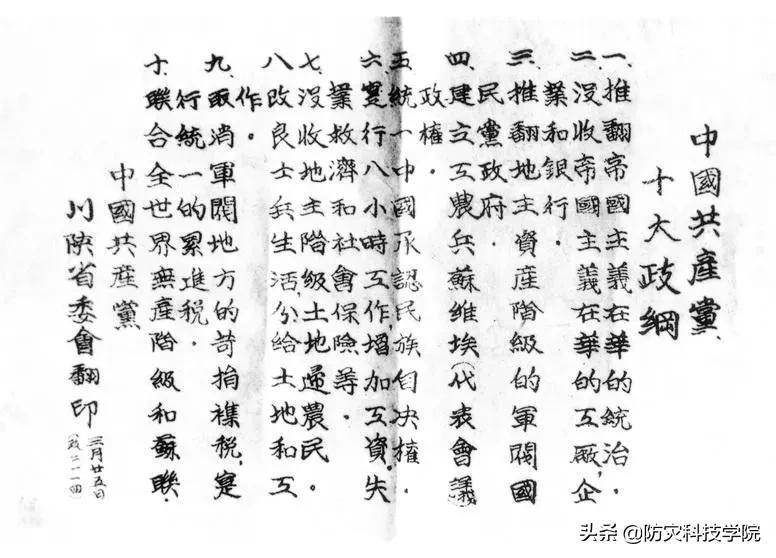 中國共產黨
十大政綱
一、推翻帝國主義在華的統治。
二、没收帝國主義在華的工厰、企
業和銀行。
三、推翻地主資産階級的軍閥國
民黨政府。
四、建立工農兵蘇維埃（代表會議）
政權。
五、統一中國承認民族自决權。
六、寔行八小時工作，增加工資，失
業救濟和社會保險等。
七、没收地主階級土地歸農民。
八、改良士兵生活，分给土地和工
作。
九、取消軍閥地方的苛捐襍税，寔
行統一的累進税。
十、聯合全世界無產階級和蘇聯。
中國共産黨
川陝省委會翻印
三月廿五日
头条 @防灾科技学院